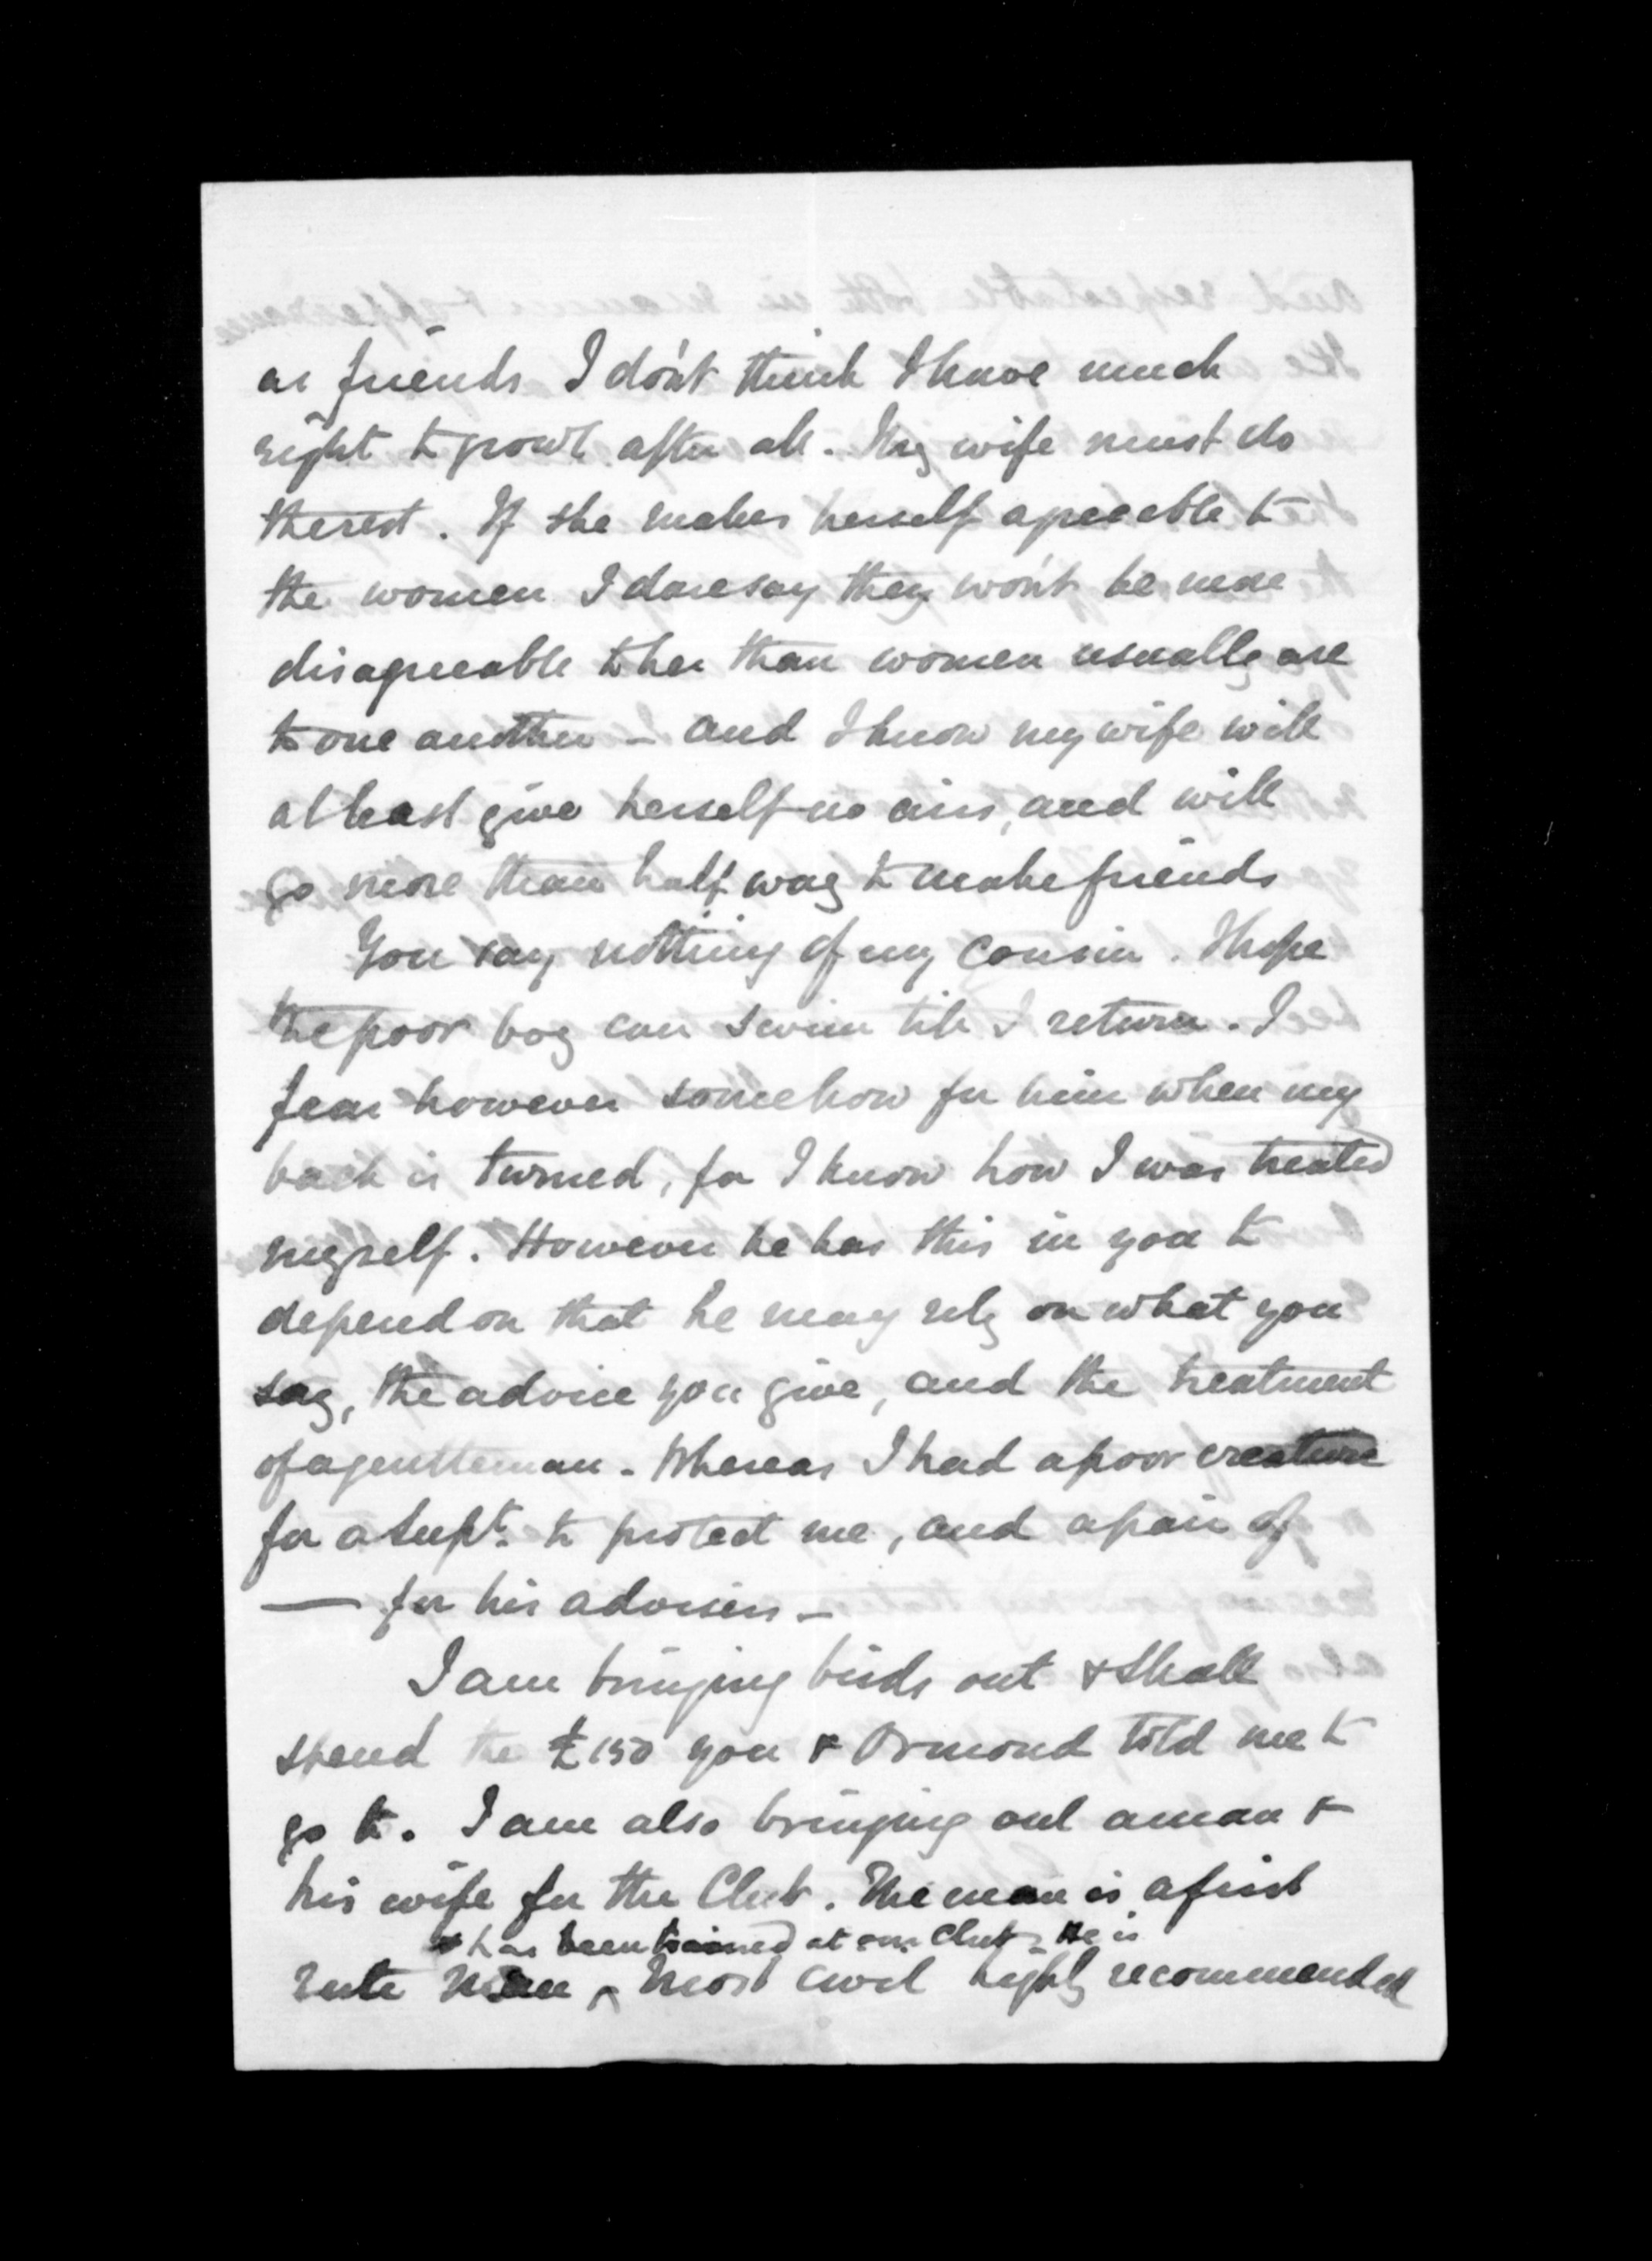 as friends I don't think I have much
right to growl after all. My wife must do
the rest. If she makes herself agreeable to
the women I daresay they won't be more
disagreeable to her than women usually are
to one another – and I know my wife will
at least give herself no airs, and will
go more than half way to make friends
You say nothing of my cousin. I hope
the poor boy can swim till I return. I
fear however somehow for him when my
back is turned, for I know how I was treated
myself. However he has this in you to
depend on that he may rely on what you
say, the advice you give, and the treatment
of a gentleman. Whereas I had a poor creature
for a Supt. to protect me, and a pair of
— for his advisers –
I am bringing birds out & shall
spend the £150 you & Ormond told me to
go to. I am also bringing out a man &
his wife for the Club. The man is a first
& has been trained at our Club – He is
rate man ^ most civil highly recommended